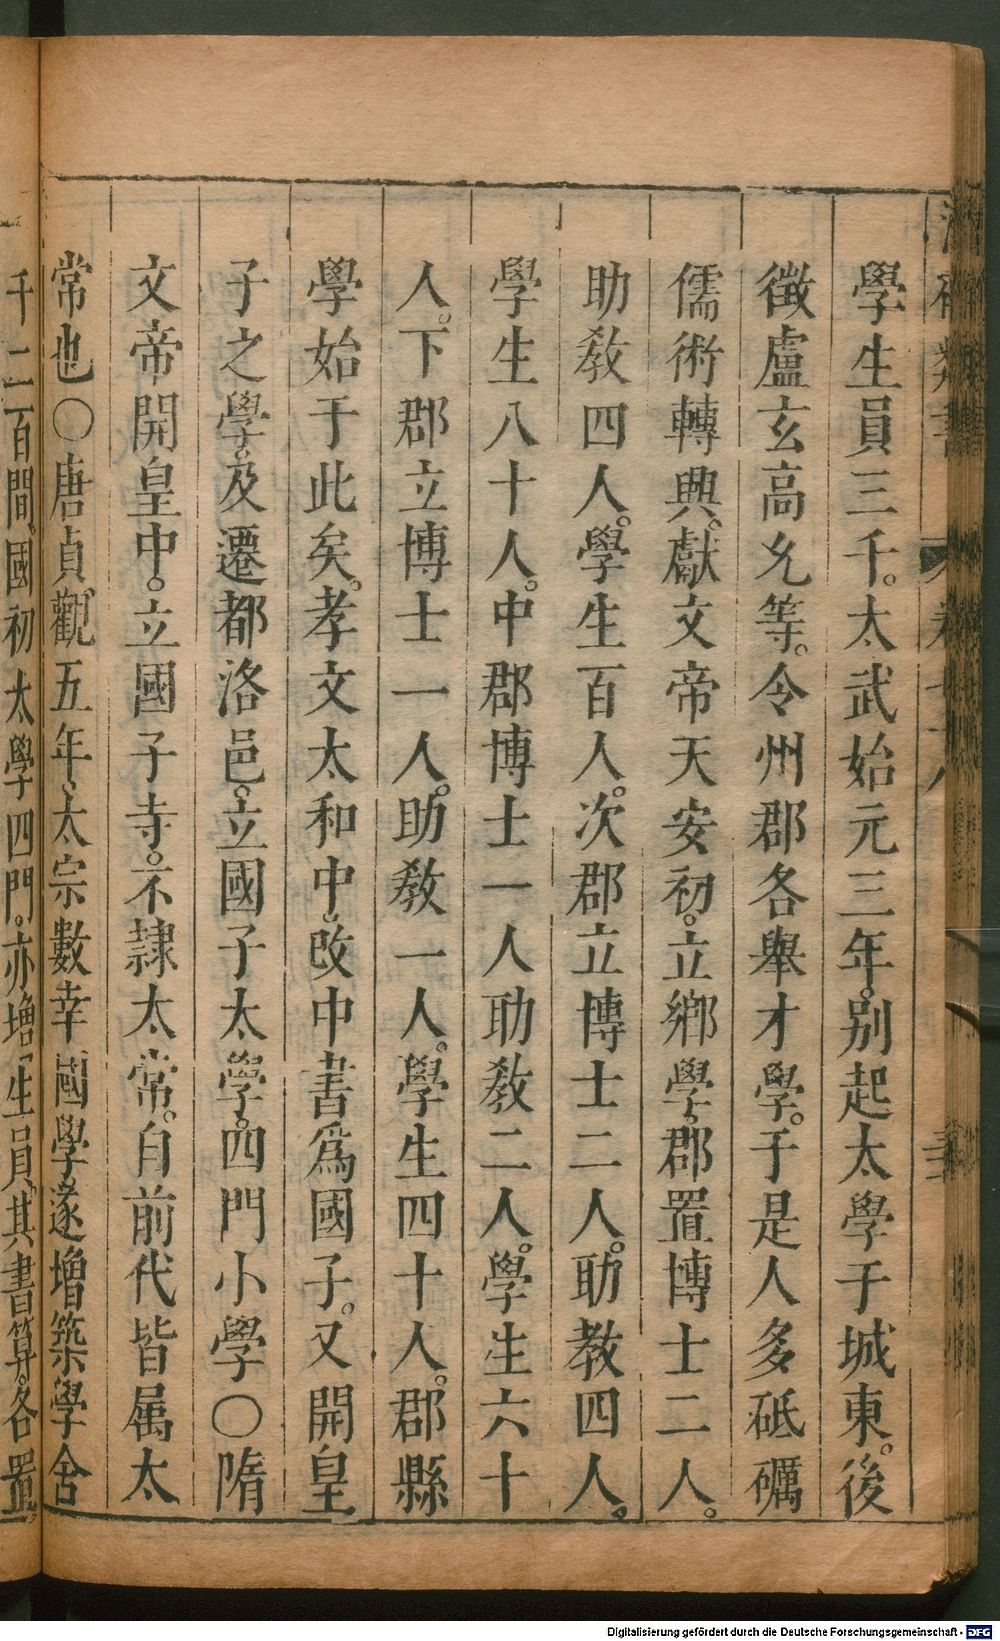 學生員三千。太武始元三年。別起太學于城東。後
徵盧玄高允等。令州郡各舉才學。于是人多砥礪
儒術轉興。獻文帝天安初。立鄉學。郡置博士二人。
助教四人。學生百人。次郡立博士二人。助教四人。
學生八十人。中郡博士一人助教二人。學生六十
人。下郡立博士一人。助教一人。學生四十人。郡縣
學始于此矣。孝文太和中。改中書爲國子。又開皇
子之學。及遷都洛邑。立國子太學。四門小學○隋
文帝開皇中。立國子寺。不隷太常。自前代皆属太
常也○唐貞觀五年。太宗數幸國學。遂增築學舍
千二百間。國初太學四門。亦增生員。其書算。各置
Digitalisierung gefördert durch die Deutsche Forschungsgemeinschaft - DFG